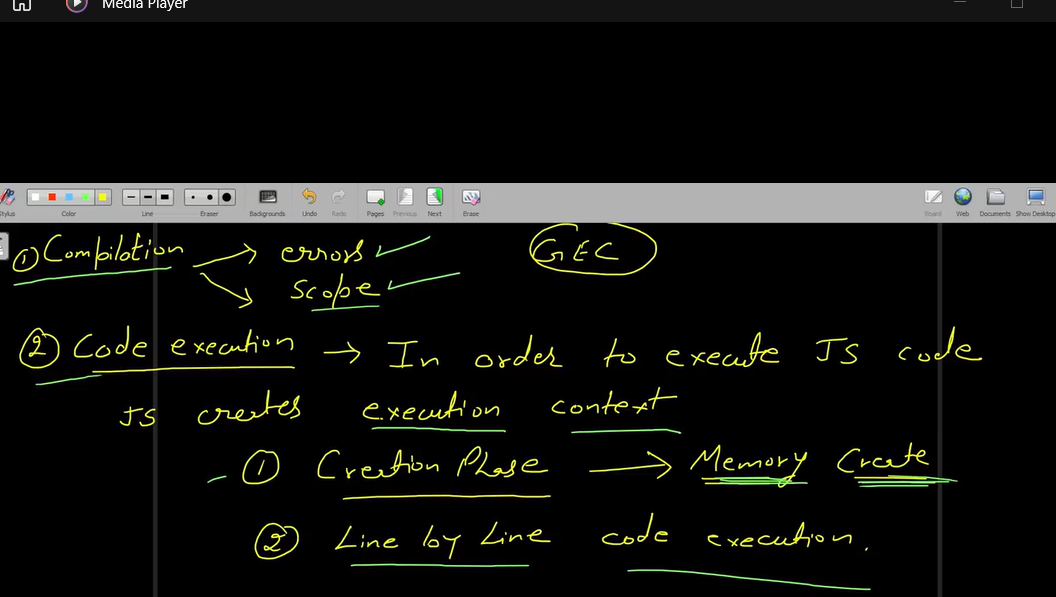 Media Player
Stylus Color Line Eraser Backgrounds Undo Redo Pages Previous Next Erase Board Web Documents Show Desktop
① Compilation → errors ✓ GEC
→ Scope ✓
② Code execution → In order to execute JS code
JS creates execution context
① Creation Phase → Memory Create
② Line by Line code execution.